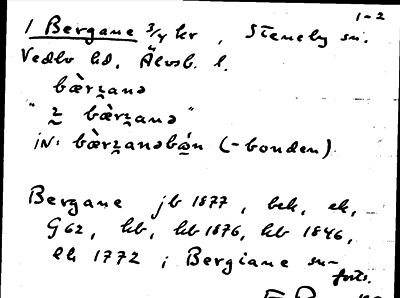 1-2
1 Bergane 3/4 hr, Steneby sn.
Vedbo hd, Älvsb. l.
bæ̀rz̠anə
"2̰ bæ̀rz̠anə"
iN: bæ̀rz̠anəbǫ́n (-bonden)
Bergane jb 1877, bek, ek,
G62, hb, hb 1876, hb 1846,
lh 1772 ; Bergiane sn-
forts.